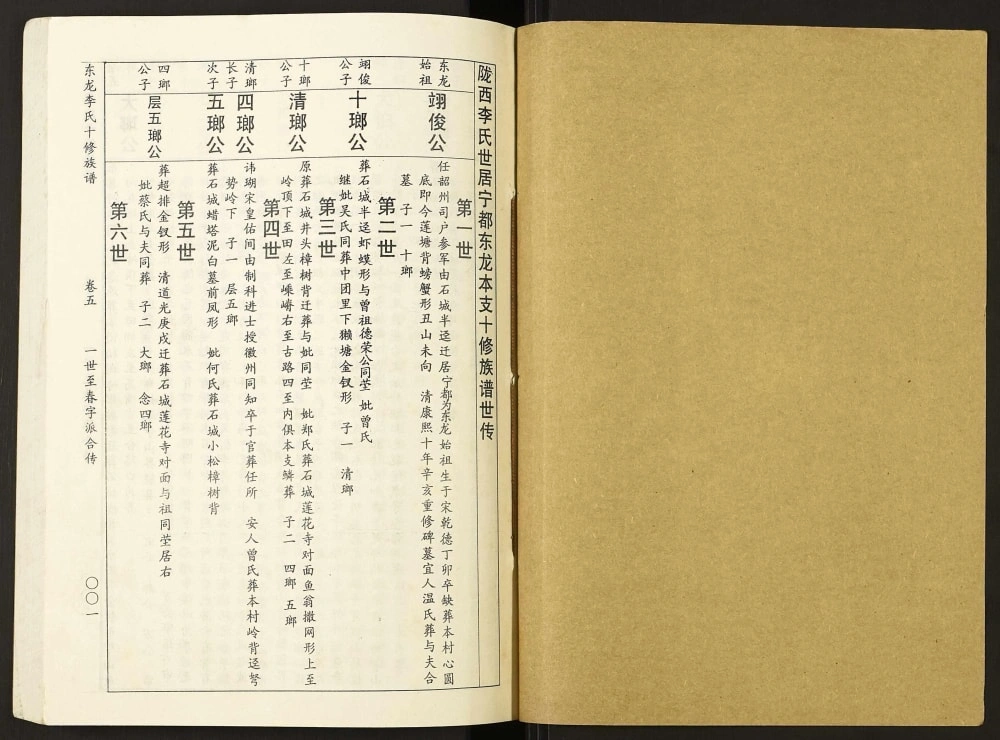 陇西李氏世居宁都东龙本支十修族谱世传
第一世
东龙
始祖
翊俊公
任韶州司户参军由石城半迳迁居宁都为东龙始祖生于宋乾德丁卯卒缺葬本村心圆
底即今莲塘背螃蟹形丑山未向 清康熙十年辛亥重修碑墓宜人温氏葬与夫合
墓 子一 十瑯
第二世
翊俊
公子
十瑯公
葬石城半迳虾蟆形与曾祖德荣公同茔 妣曾氏
继妣吴氏同葬中团里下獭塘金钗形 子一 清瑯
第三世
十瑯
公子
清瑯公
原葬石城井头樟树背迁葬与妣同茔 妣郑氏葬石城莲花寺对面鱼翁撒网形上至
岭顶下至田左至嵊嵴右至古路四至内俱本支鳞葬 子二 四瑯 五瑯
第四世
清瑯
长子
四瑯公
讳瑚宋皇佑间由制科进士授徽州同知卒于官葬任所 安人曾氏葬本村岭背迳弩
势岭下 子一 层五瑯
次子
五瑯公
葬石城蜡塔泥白墓前凤形 妣何氏葬石城小松樟树背
第五世
四瑯
公子
层五瑯公
葬超排金钗形 清道光庚戌迁葬石城莲花寺对面与祖同茔居右
妣蔡氏与夫同葬 子二 大瑯 念四瑯
第六世
东龙李氏十修族谱
卷五
一世至春字派合传
〇〇一